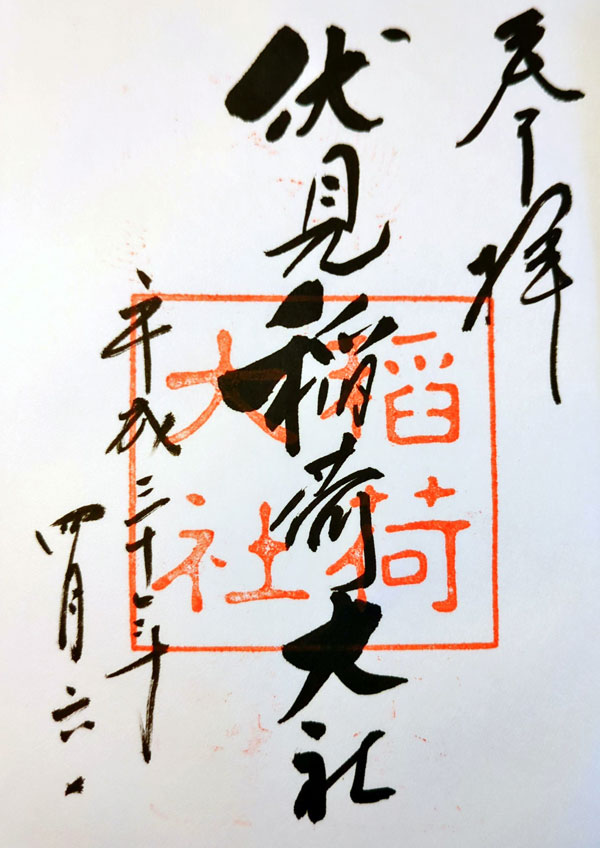 奉拝
伏見稲荷大社
平成三十一年
四月六日
稲荷
大社